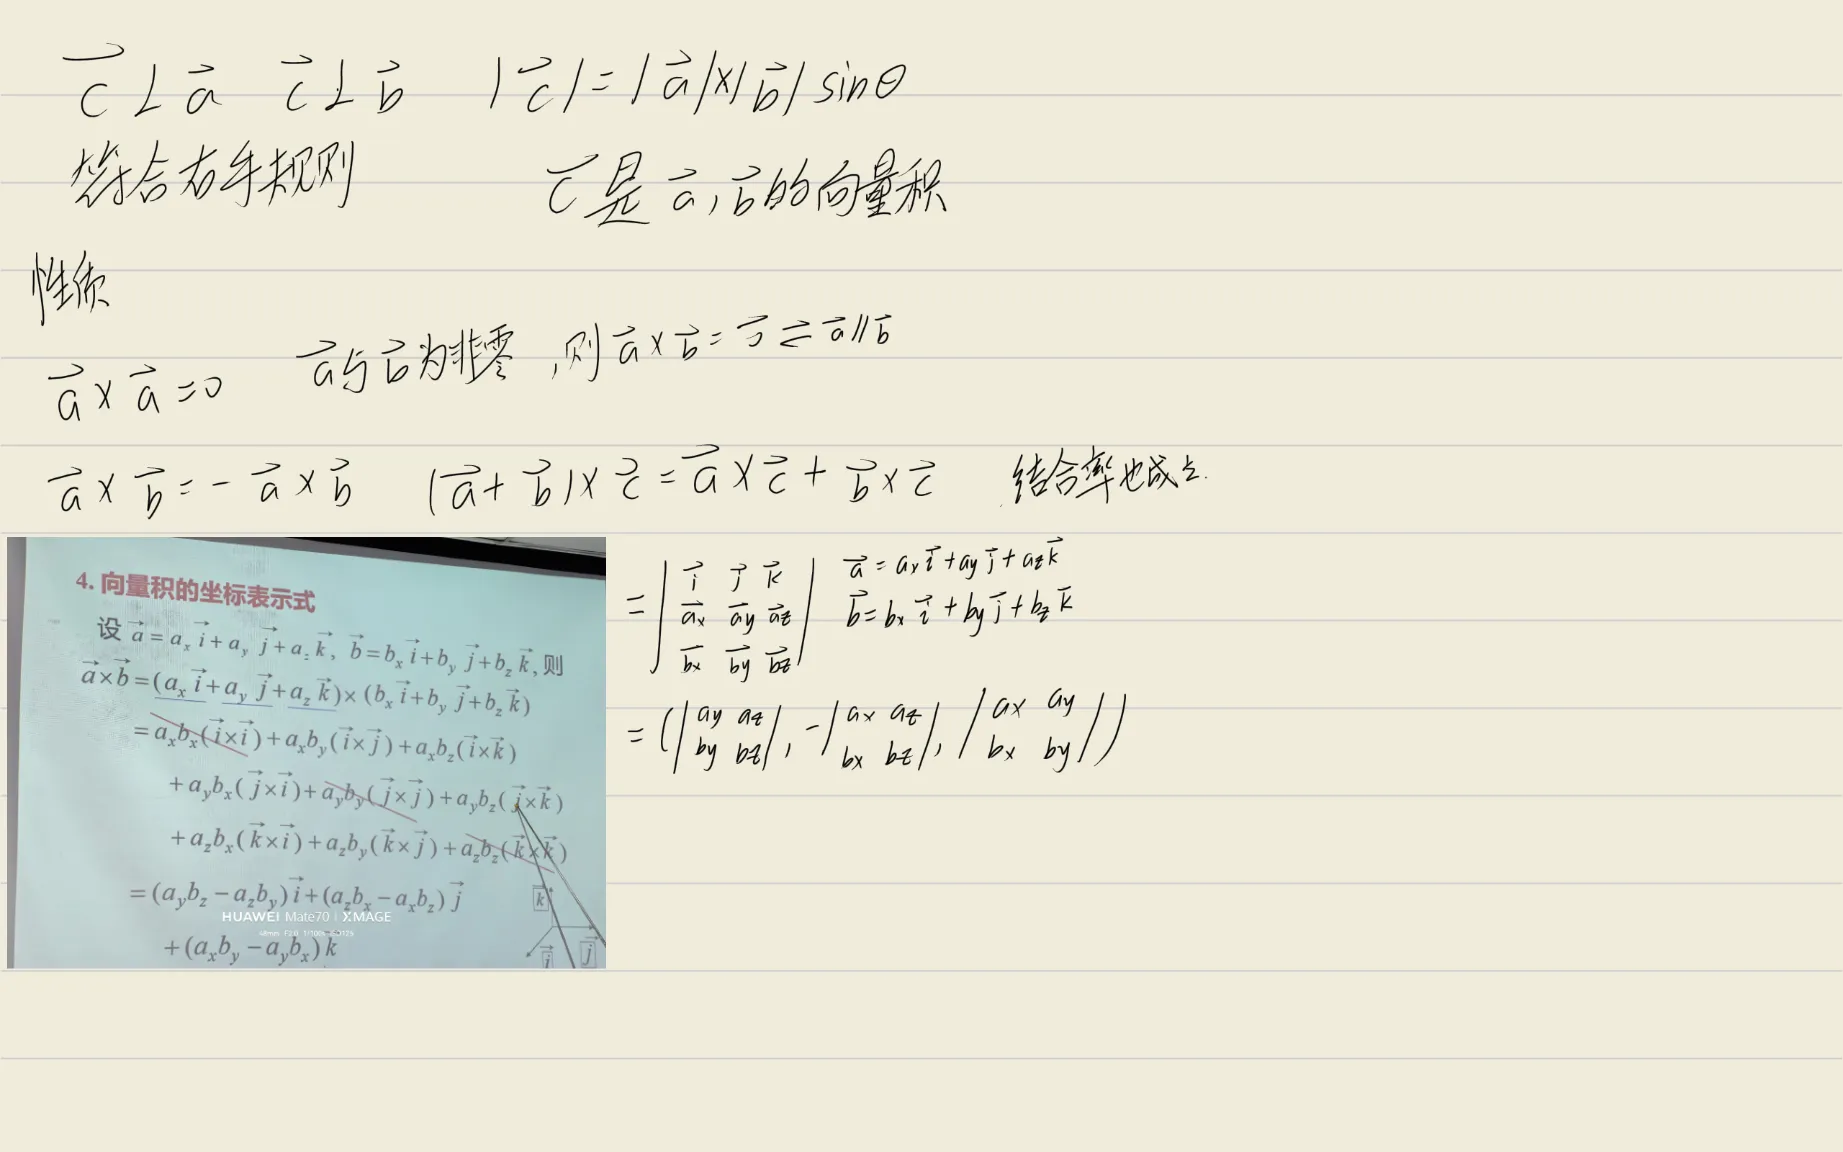 c⃗⊥a⃗ c⃗⊥b⃗ |c⃗|=|a⃗|×|b⃗| sinθ
符合右手规则 c⃗是a⃗,b⃗的向量积
性质
a⃗×a⃗=0 a⃗与b⃗为非零,则a⃗×b⃗=0⃗⇌a⃗∥b⃗
a⃗×b⃗=-a⃗×b⃗ (a⃗+b⃗)×c⃗=a⃗×c⃗+b⃗×c⃗ 结合率也成立.
4. 向量积的坐标表示式
设 a⃗=aₓi⃗+a_y j⃗+a_z k⃗, b⃗=bₓi⃗+b_y j⃗+b_z k⃗,则
a⃗×b⃗=(aₓi⃗+a_y j⃗+a_z k⃗)×(bₓi⃗+b_y j⃗+b_z k⃗)
=aₓbₓ(i⃗×i⃗)+aₓb_y(i⃗×j⃗)+aₓb_z(i⃗×k⃗)
+a_y bₓ(j⃗×i⃗)+a_y b_y(j⃗×j⃗)+a_y b_z(j⃗×k⃗)
+a_z bₓ(k⃗×i⃗)+a_z b_y(k⃗×j⃗)+a_z b_z(k⃗×k⃗)
=(a_y b_z-a_z b_y)i⃗+(a_z bₓ-aₓb_z)j⃗
HUAWEI Mate70 | XMAGE
+(aₓb_y-a_y bₓ)k⃗
k⃗
i⃗ j⃗
=| i⃗ j⃗ k⃗ | a⃗=aₓi⃗+a_y j⃗+a_z k⃗
| a⃗ₓ a⃗_y a⃗_z | b⃗=bₓi⃗+b_y j⃗+b_z k⃗
| b⃗ₓ b⃗_y b⃗_z |
=(|a_y a_z|,-|aₓ a_z|,|aₓ a_y|)
|b_y b_z| |bₓ b_z| |bₓ b_y|